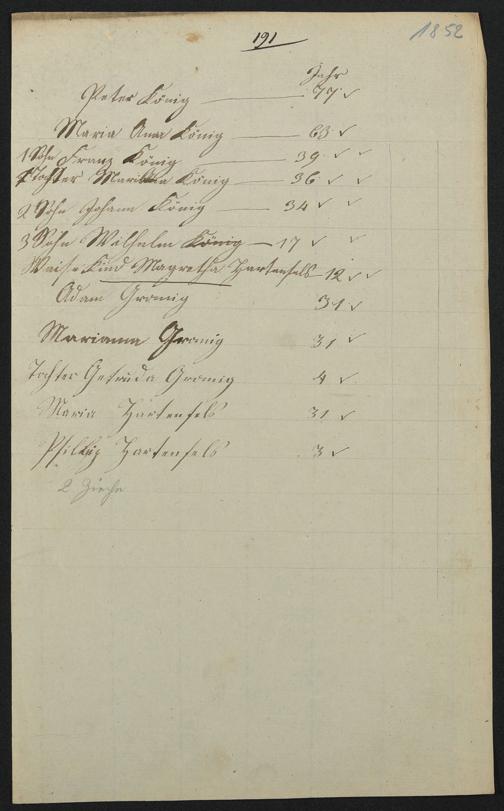 191
1852
Jahr
Peter König — 77 ✓
Maria Anna König — 63 ✓
1 Sohn Franz König — 39 ✓ ✓
1 Tochter König — 36 ✓ ✓
2 Sohn Johann König — 34 ✓ ✓
3 Sohn Wilhelm König — 17 ✓ ✓
Waise Kind Magretha Hartenfels — 12 ✓ ✓
Adam Gromig 31 ✓
Marianna Gromig 31 ✓
Tochter Getruda Gromig 4 ✓
Maria Hartenfels 31 ✓
Phillip Hartenfels 3 ✓
2